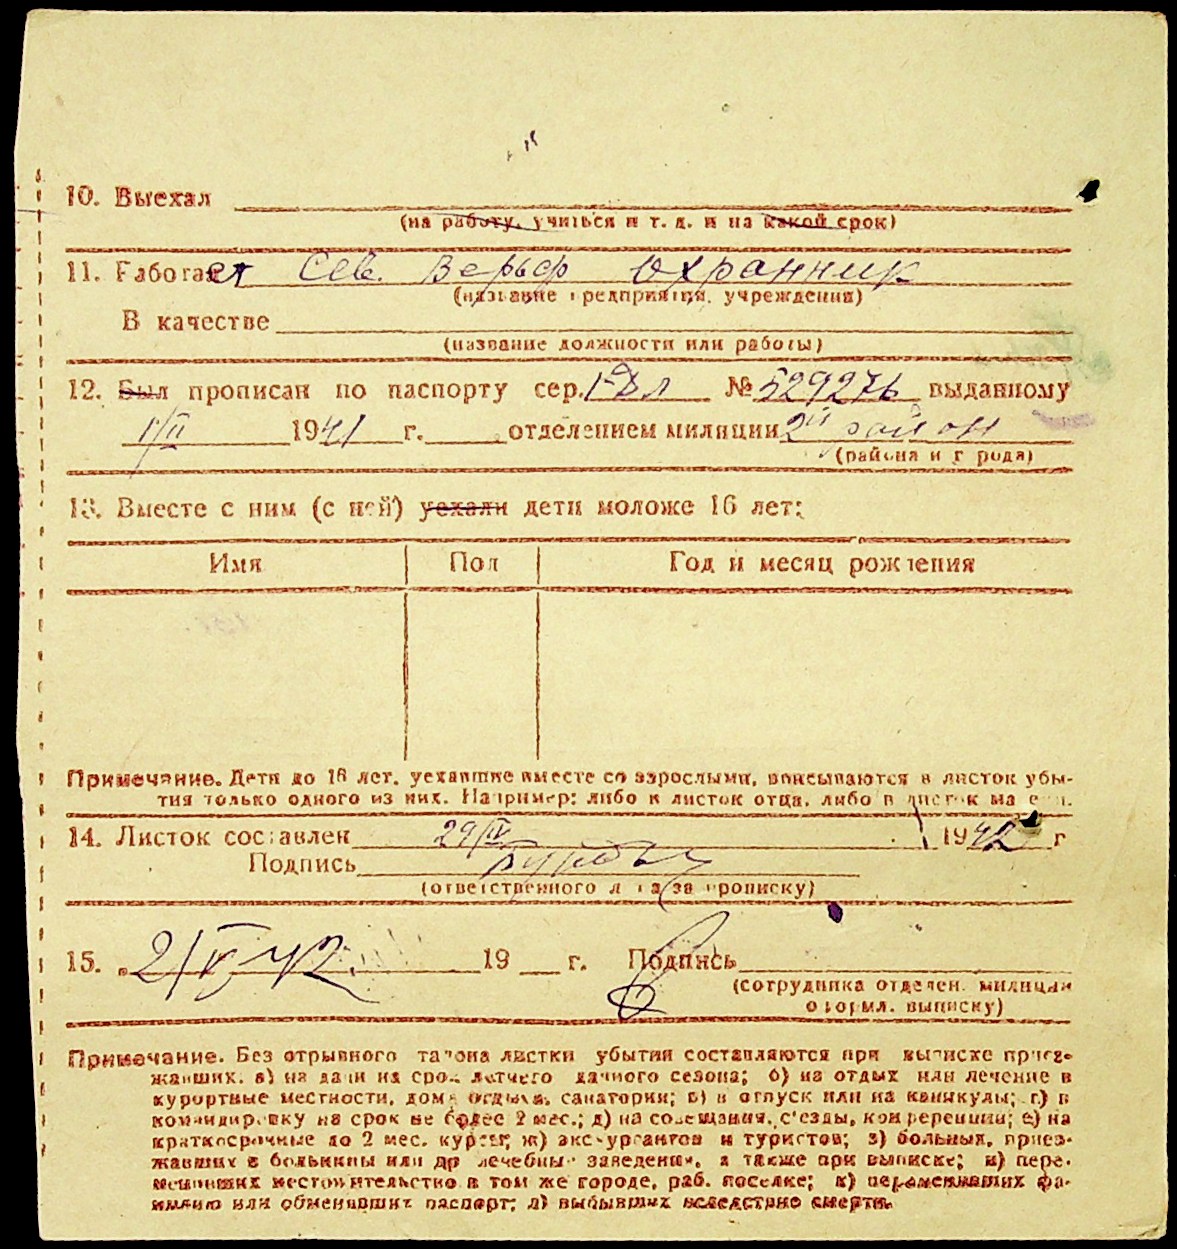 10. Выехал
(на работу, учиться и т. д. и на какой срок)
11. Работает Сев. Верьф Охранник
(название предприятия, учреждения)
В качестве
(название должности или работы)
12. Был прописан по паспорту сер. № 529276 выданному
1/II 1941 г. отделением милиции 2й район
(района и города)
13. Вместе с ним (с ней) уехали дети моложе 16 лет:
Имя Пол Год и месяц рождения
Примечание. Дети до 16 лет, уехавшие вместе со взрослыми, вписываются в листок убы-
тия только одного из них. Например: либо в листок отца, либо в листок матери.
14. Листок составлен 29/IV 1942 г
Подпись
(ответственного лица за прописку)
15. 2/V 42. 19 г. Подпись
(сотрудника отделен. милиции
оформл. выписку)
Примечание. Без отрывного талона листки убытия составляются при выписке приез-
жавших: а) на дачи на срок летнего дачного сезона; б) на отдых или лечение в
курортные местности, дома отдыха, санатории; в) в отпуск или на каникулы; г) в
командировку на срок не более 2 мес.; д) на совещания, с'езды, конференции; е) на
краткосрочные до 2 мес. курсы; ж) экскурсантов и туристов; з) больных, приез-
жавших в больницы или др лечебные заведения, а также при выписке; и) пере-
менивших местожительство в том же городе, раб. поселке; к) переменивших фа-
милию или обменявших паспорт; л) выбывших вследствие смерти.